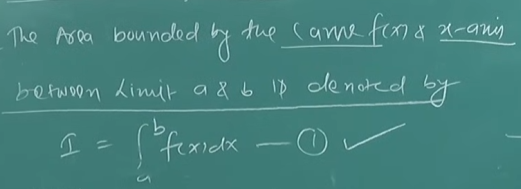 The Area bounded by the curve f(x) & x-axis
between Limit a & b is denoted by
I = ∫ₐᵇ f(x)dx — ① ✓